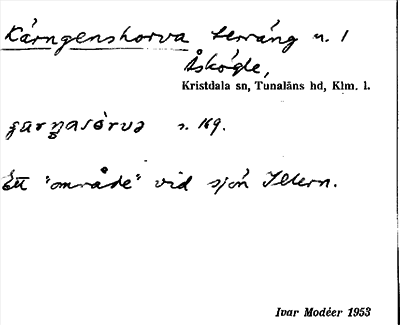 Kärngenshorva terräng n. 1
Åskögle,
Kristdala sn, Tunaläns hd, Klm. l.
s. 169.
Ett "område" vid sjön Illern.
Ivar Modéer 1953